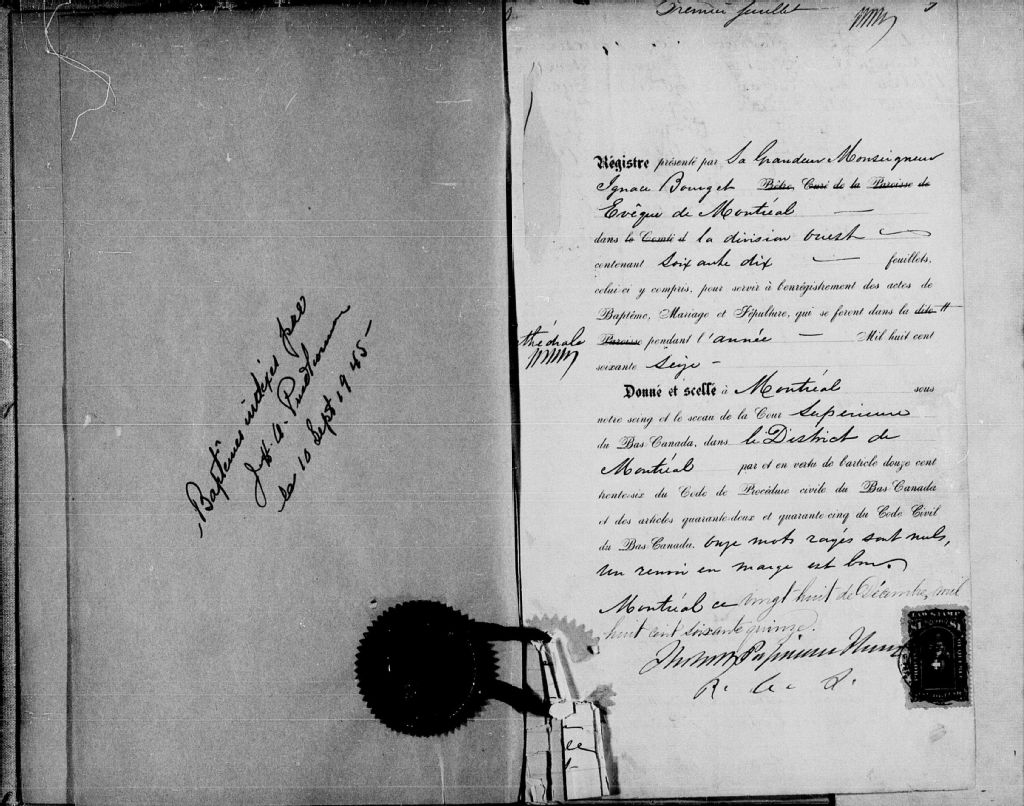 Baptêmes indexés par
J. H. A. Prudhomme
le 10 Sept 1945 -
Premier feuillet
Régistre présenté par Sa Grandeur Monseigneur
Ignace Bourget Prêtre, Curé de la Paroisse de
Evêque de Montréal —
dans le Comté d la division ouest
contenant Soixante dix — feuillets,
celui-ci y compris, pour servir à l'enrégistrement des actes de
Baptême, Mariage et Sépulture, qui se feront dans la dite #
thédrale
Paroisse pendant l'année — Mil huit cent
soixante Seize -
Donné et scellé à Montréal sous
notre seing et le sceau de la Cour Supérieure
du Bas-Canada, dans le District de
Montréal par et en vertu de l'article douze cent
trente-six du Code de Procédure civile du Bas-Canada
et des articles quarante-deux et quarante-cinq du Code Civil
du Bas-Canada. Onze mots rayés sont nuls,
un renvoi en marge est bon.
Montréal ce vingt huit de Décembre, mil
huit cent soixante quinze.
Papineau